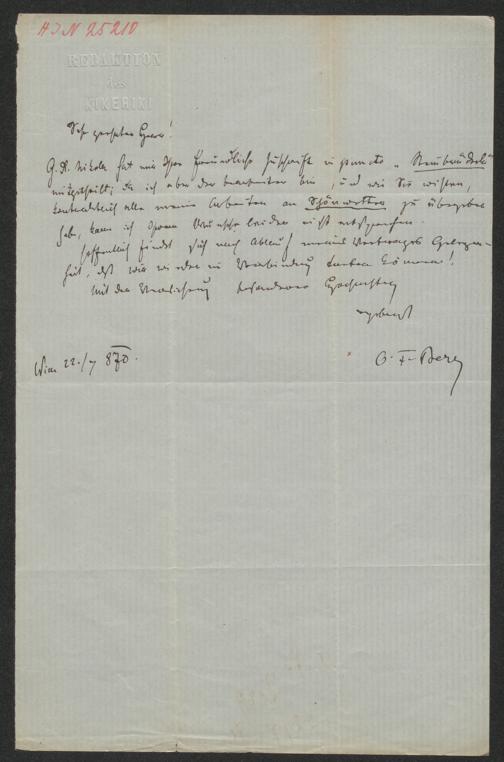 HJN 25210
REDAKTION
des
KIKERIKI
Sehr geehrter Herr!
G. R. Nikola hat mir Ihre freundliche Zuschrift in puncto „
mitgetheilt, da ich aber der Bearbeiter bin, und wie Sie wissen,
kontraktlich alle meine Arbeiten an Schönwetter zu übergeben
habe, kann ich Ihrem Wunsche leider nicht entsprechen.
Hoffentlich findet sich nach Ablauf meines Vertrages Gelegen-
heit, daß wir wieder in Verbindung treten können!
Mit der Versicherung besonderer Hochachtung
ergebenst
Wien 22./7 870.
O. F. Berg